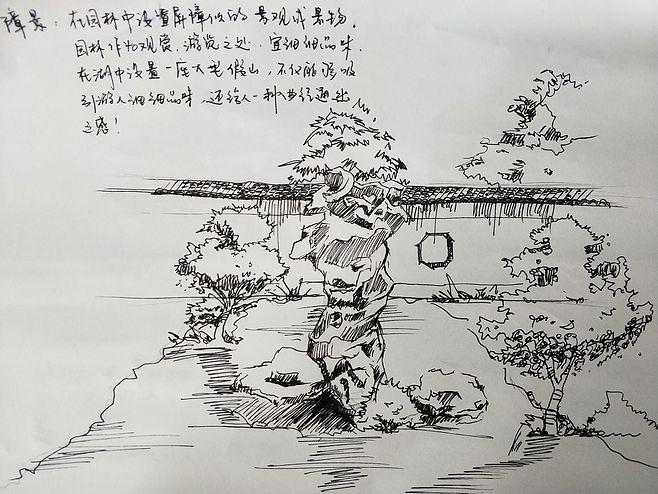 障景：在园林中设置屏障似的景观或景物。
园林作为观赏、游览之处，宜细细品味，
在湖中设置一座大型假山，不仅能吸
引游人细细品味，还给人一种曲径通幽
之感！